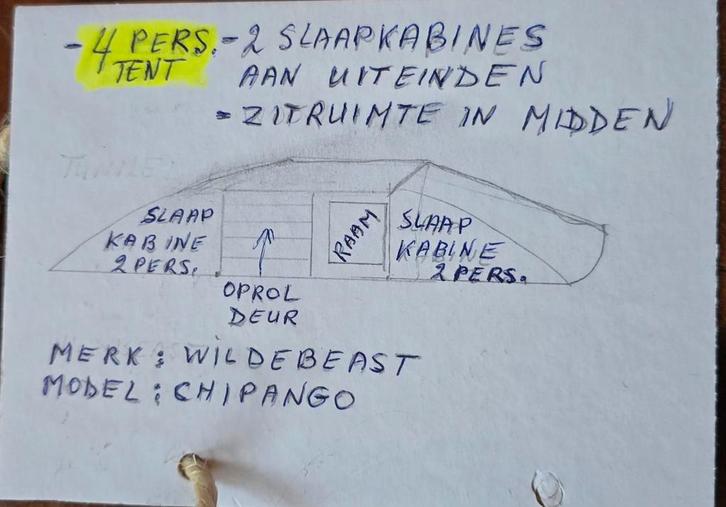 - 4 PERS. TENT
- 2 SLAAPKABINES
AAN UITEINDEN
- ZITRUIMTE IN MIDDEN
TUNNEL
SLAAP
KABINE
2 PERS.
OPROL
DEUR
RAAM
SLAAP
KABINE
2 PERS.
MERK: WILDEBEAST
MODEL: CHIPANGO